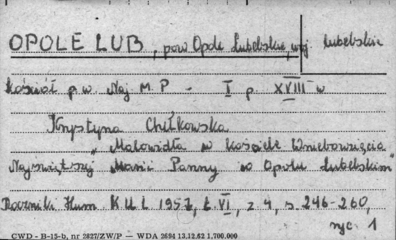 OPOLE LUB, pow Opole Lubelskie, woj. lubelskie
Kościół p.w. Naj M.P - I p. XVIII w
Krystyna Chełkowska
„Malowidła w kościele Wniebowzięcia
Najświętszej Marii Panny w Opolu Lubelskim"
Roczniki Hum KUL 1957, t. VI, z 4, s. 246-260,
ryc. 1
CWD - B-15-b, nr 2827/ZW/P — WDA 2694 13.12.62 1.700.000